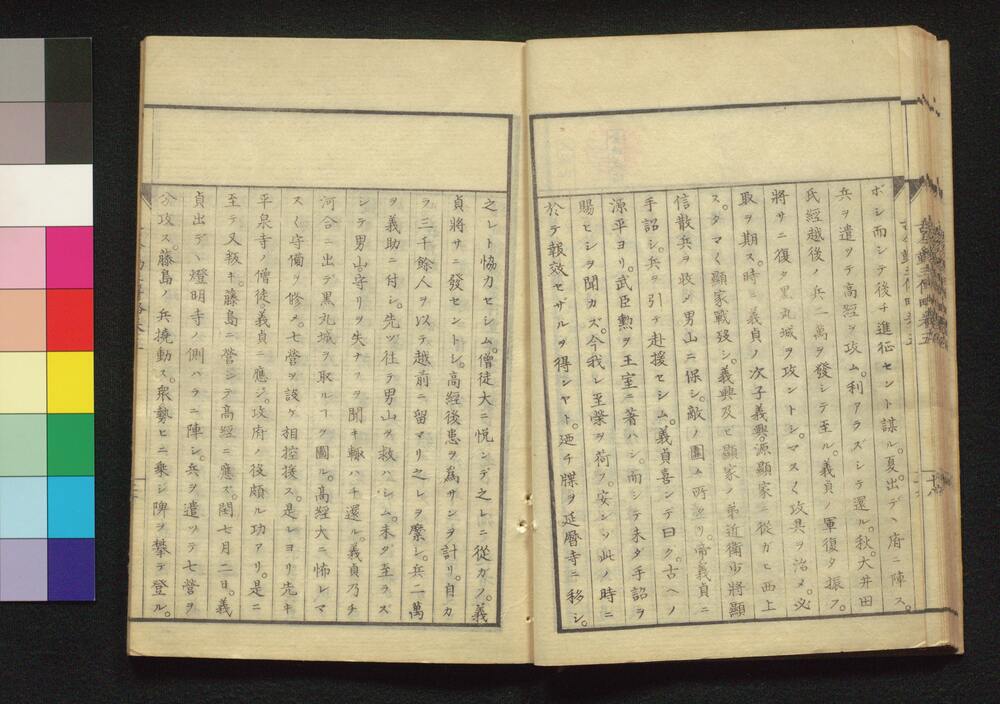 ボシ而シテ後チ進征セント謀ル。夏。出デヽ府ニ陣ス。
兵ヲ遣ツテ高經ヲ攻ム。利アラズシテ還ル。秋。大井田
氏經越後ノ兵二萬ヲ發シテ至ル。義貞ノ軍復タ振フ。
將サニ復タ黒丸城ヲ攻ントシ。マスく攻具ヲ治メ。必
取ヲ期ス。時ニ義貞ノ次子義興。源顯家ニ從ガヒ西上
ス。タマく顯家戰歿シ。義興及ヒ顯家ノ弟近衛少將顯
信散兵ヲ收メ男山ニ保シ。敵ノ圍ム所タリ。帝義貞ニ
手詔シ。兵ヲ引テ赴援セシム。義貞喜ンテ曰ク。古ヘノ
源平ヨリ。武臣勲ヲ王室ニ著ハシ。而シテ未タ手詔ヲ
賜ヒシヲ聞カズ。今我レ至榮ヲ荷フ。安ンソ此ノ時ニ
於テ報效セザルヲ得ンヤト。廼チ牒ヲ延暦寺ニ移シ。
之レト恊力セシム。僧徒大ニ悦ンデ之レニ從ガフ。義
貞將サニ發セントシ。高經後患ヲ爲サンヲ計リ。自カ
ラ三千餘人ヲ以テ越前ニ留マリ之レヲ縻シ。兵二萬
ヲ義助ニ付シ。先ツ往テ男山ヲ救ハシム。未タ至ラズ
シテ男山守リヲ失ナフヲ聞キ輙ハチ還ル。義貞乃チ
河合ニ出デ黒丸城ヲ取ルコヲ圖ル。高經大ニ怖レマ
スく守備ヲ修メ。七營ヲ設ゲ相控援ス。是レヨリ先キ
平泉寺ノ僧徒義貞ニ應ジ。攻府ノ役頗ル功アリ。是ニ
至テ又叛キ。藤島ニ營シテ高經ニ應ズ。閏七月二日。義
貞出デヽ燈明寺ノ側ハラニ陣シ。兵ヲ遣ツテ七營ヲ
分攻ス。藤島ノ兵撓動ス。衆勢ヒニ乗シ陴ヲ攀テ登ル。